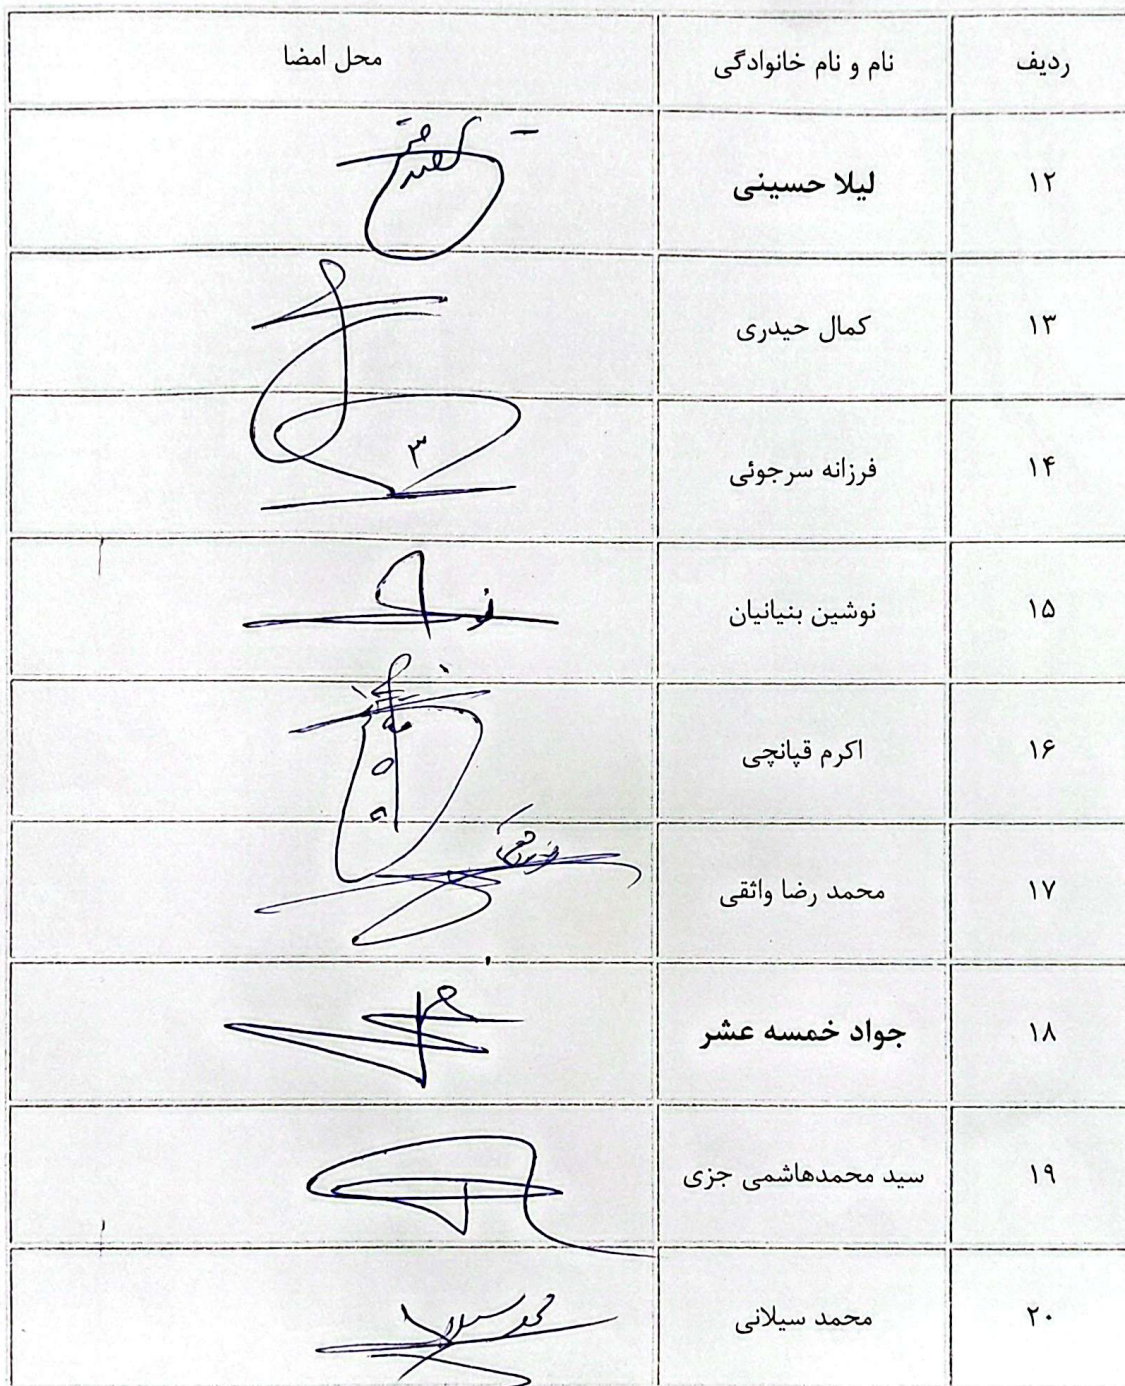 ردیف نام و نام خانوادگی محل امضا
۱۲ لیلا حسینی
۱۳ کمال حیدری
۱۴ فرزانه سرجوئی ۳
۱۵ نوشین بنیانیان
۱۶ اکرم قپانچی
۱۷ محمد رضا واثقی
۱۸ جواد خمسه عشر
۱۹ سید محمدهاشمی جزی
۲۰ محمد سیلانی